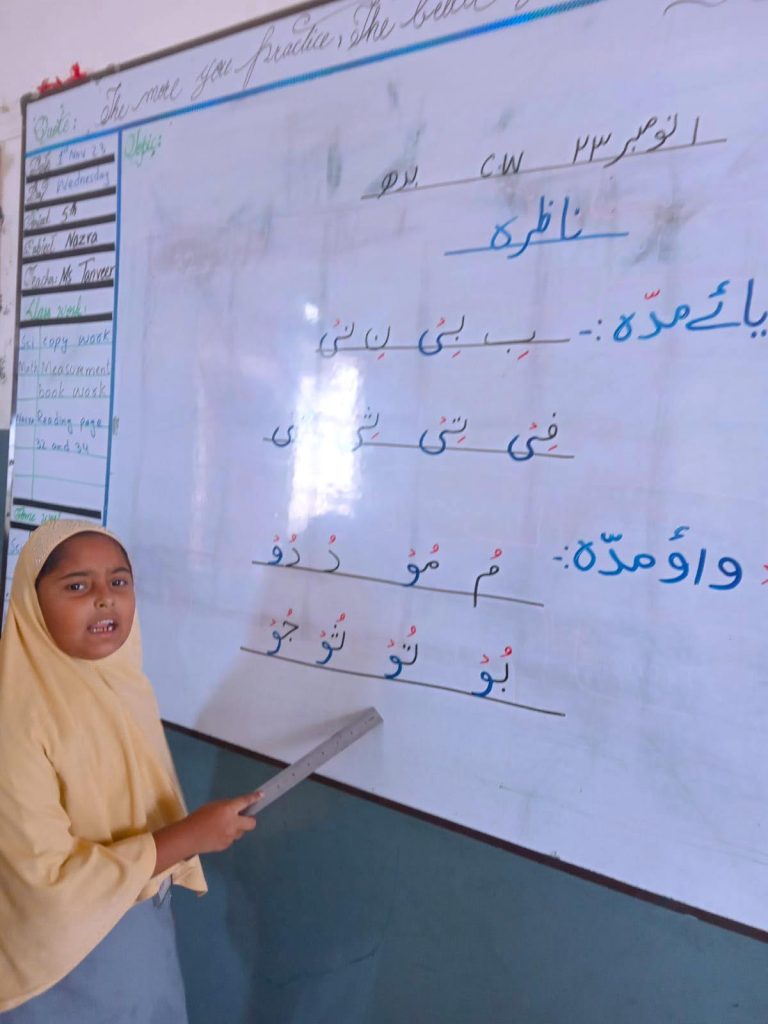 Quote: The more you practice, The better
Date 1st Nov 23
Day Wednesday
Period 5th
Subject Nazra
Teacher: Ms Tanveer
Class work:
Sci copy work
Math Measurement
book work
Nazra Reading page
32 and 34
Home work
Sci
Topic:
۱ نومبر ۲۳ C.W بدھ
ناظرہ
یائے مدّہ :-
بِ بِىْ نِ نِىْ
فِىْ تِىْ
واؤ مدّہ :-
مُ مُوْ دُ دُوْ
بُوْ تُوْ ثُوْ جُوْ